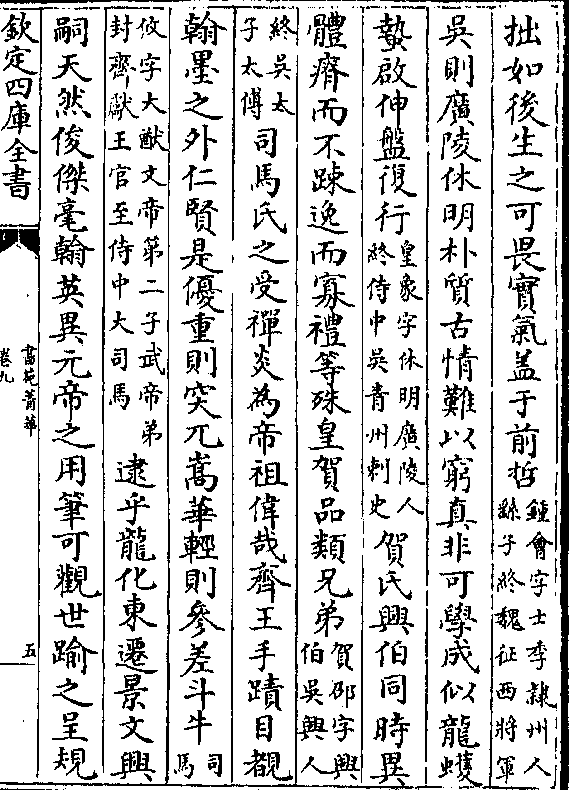 拙如後生之可畏實氣蓋于前哲鍾會字士季隷州人繇子終魏征西將軍
吳則廣陵休明朴質古情難以窮真非可學成似龍蠖
蟄啟伸盤復行皇象字休明廣陵人終侍中吳青州刺史賀氏興伯同時異
體瘠而不踈逸而寡禮等殊皇賀品類兄弟賀邵字興伯吳興人
終吳太子太傅司馬氏之受禪炎為帝祖偉哉齊王手蹟目覩
翰墨之外仁賢是優重則突兀嵩華輕則參差斗牛司馬
攸字大猷文帝第二子武帝弟封齊獻王官至侍中大司馬逮乎龍化東遷景文興
嗣天然俊傑毫翰英異元帝之用筆可觀世踰之呈規
欽定四庫全書
書苑菁華
卷九
五